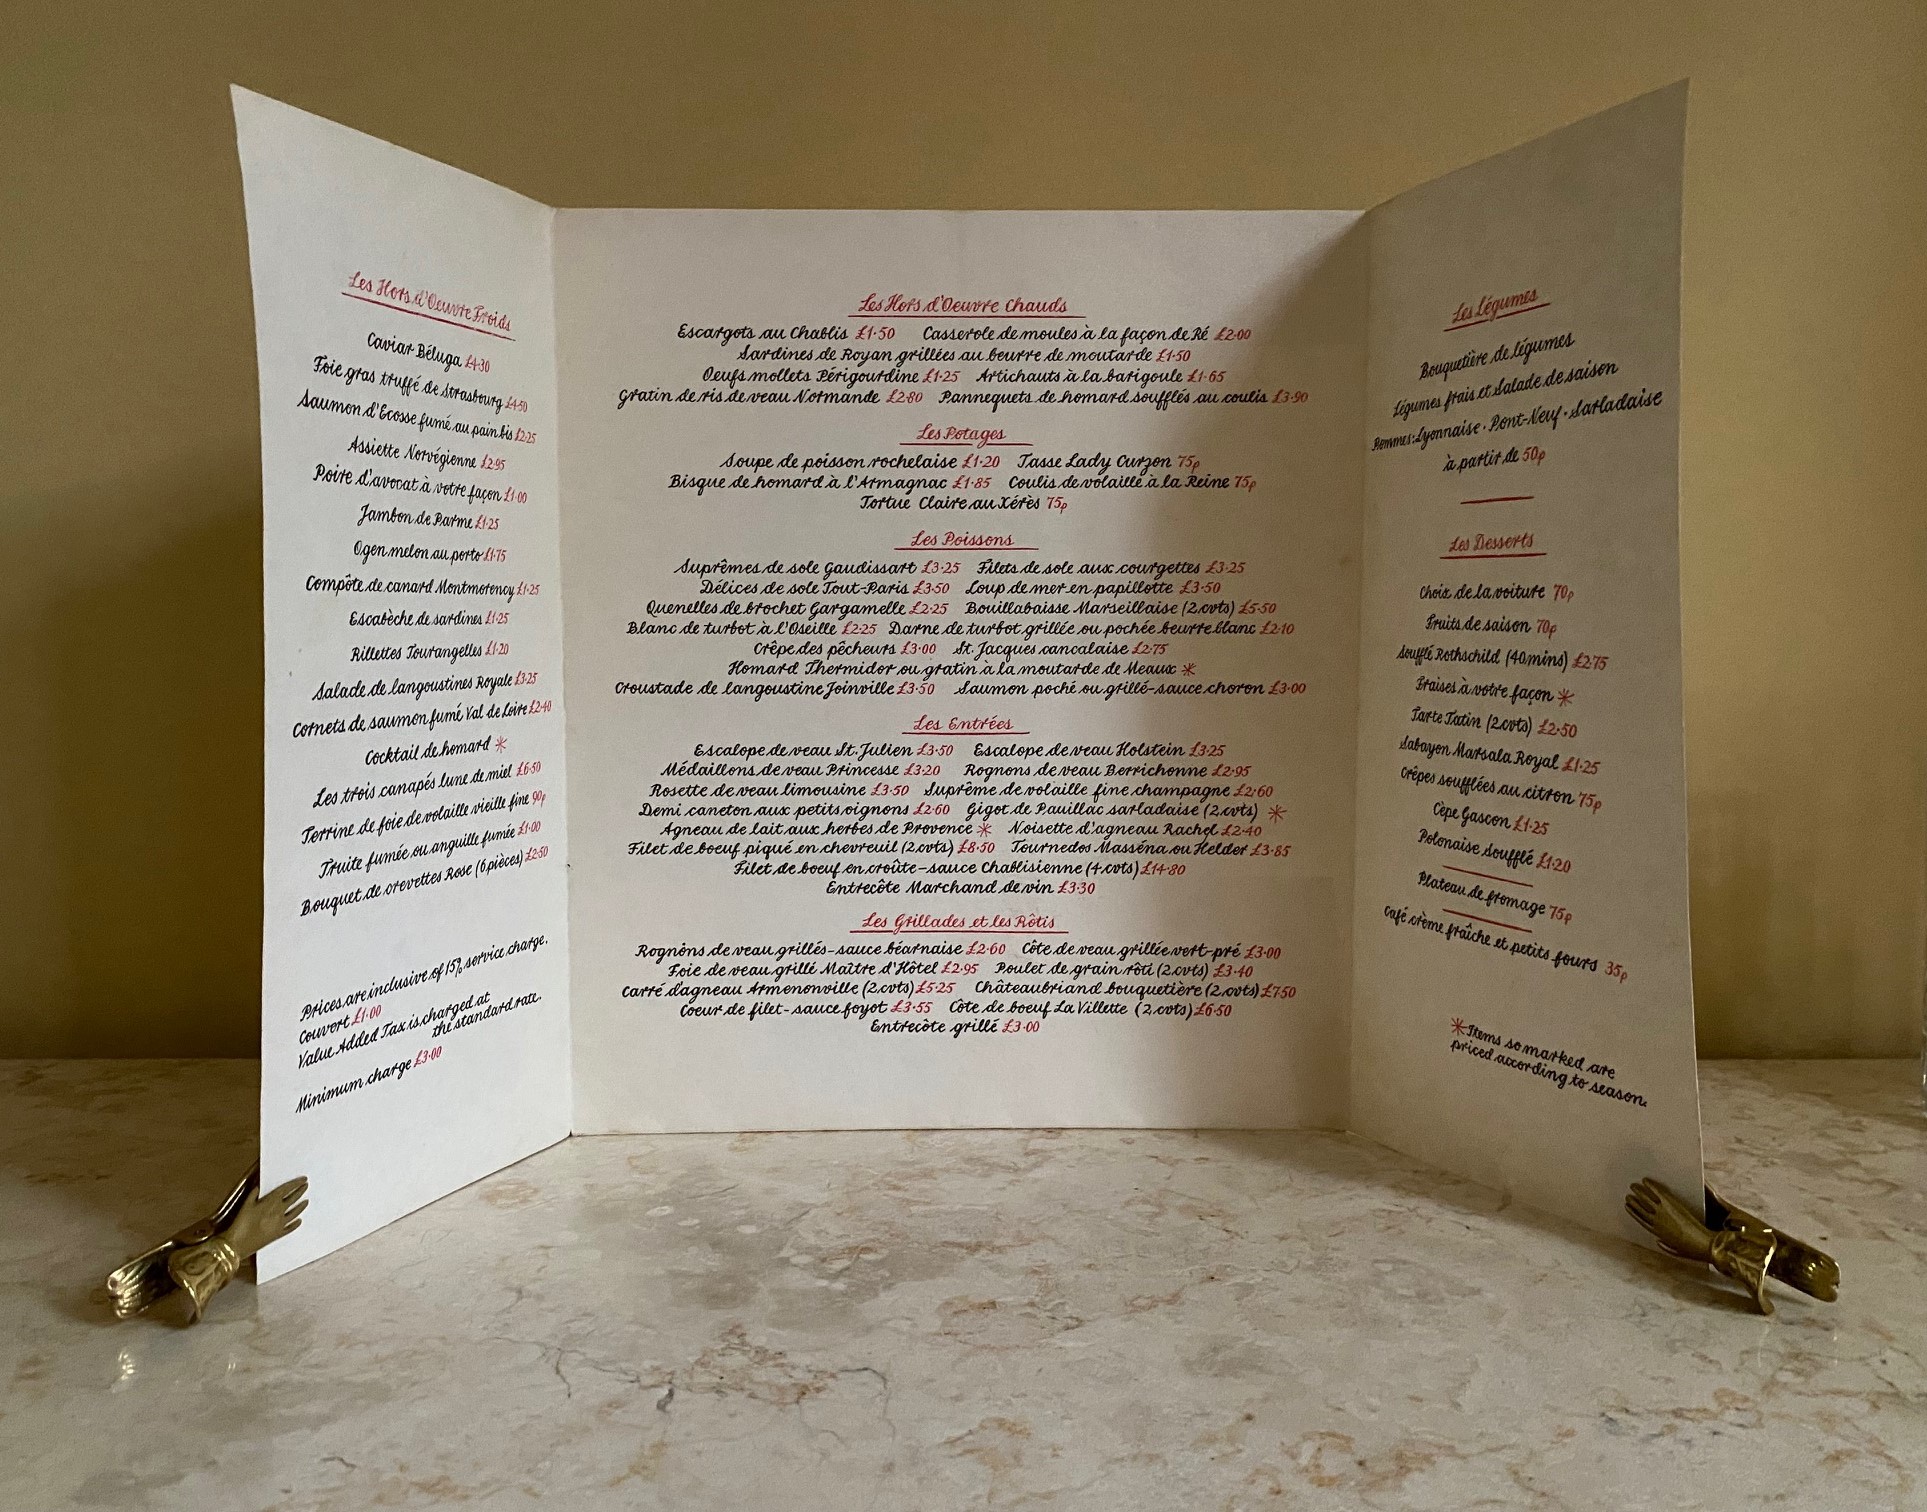 Les Hors d'Oeuvre Froids
Caviar Béluga £4·30
Foie gras truffé de Strasbourg £4·50
Saumon d'Ecosse fumé au pain bis £2·25
Assiette Norvégienne £2·95
Poire d'avocat à votre façon £1·00
Jambon de Parme £1·25
Ogen melon au porto £1·75
Compôte de canard Montmorency £1·25
Escabèche de sardines £1·25
Rillettes Tourangelles £1·20
Salade de langoustines Royale £3·25
Cornets de saumon fumé Val de Loire £2·40
Cocktail de homard *
Les trois canapés lune de miel £6·50
Terrine de foie de volaille vieille fine 90p
Truite fumée ou anguille fumée £1·00
Bouquet de crevettes Rose (6 pièces) £2·50
Prices are inclusive of 15% service charge.
Couvert £1·00
Value Added Tax is charged at
the standard rate.
Minimum charge £3·00
Les Hors d'Oeuvre Chauds
Escargots au Chablis £1·50 Casserole de moules à la façon de Ré £2·00
Sardines de Royan grillées au beurre de moutarde £1·50
Oeufs mollets Périgourdine £1·25 Artichauts à la barigoule £1·65
Gratin de ris de veau Normande £2·80 Pannequets de homard soufflés au coulis £3·90
Les Potages
Soupe de poisson rochelaise £1·20 Tasse Lady Curzon 75p
Bisque de homard à l'Armagnac £1·85 Coulis de volaille à la Reine 75p
Tortue Claire au Xérès 75p
Les Poissons
Suprêmes de sole Gaudissart £3·25 Filets de sole aux courgettes £3·25
Délices de sole Tout-Paris £3·50 Loup de mer en papillotte £3·50
Quenelles de brochet Gargamelle £2·25 Bouillabaisse Marseillaise (2 cvts) £5·50
Blanc de turbot à l'Oseille £2·25 Darne de turbot grillée ou pochée beurre blanc £2·10
Crêpe des pêcheurs £3·00 St. Jacques cancalaise £2·75
Homard Thermidor ou gratin à la moutarde de Meaux *
Croustade de langoustine Joinville £3·50 Saumon poché ou grillé-sauce choron £3·00
Les Entrées
Escalope de veau St. Julien £3·50 Escalope de veau Holstein £3·25
Médaillons de veau Princesse £3·20 Rognons de veau Berrichonne £2·95
Rosette de veau limousine £3·50 Suprême de volaille fine champagne £2·60
Demi caneton aux petits oignons £2·60 Gigot de Pauillac sarladaise (2 cvts) *
Agneau de lait aux herbes de Provence * Noisette d'agneau Rachel £2·40
Filet de boeuf piqué en chevreuil (2 cvts) £8·50 Tournedos Masséna ou Helder £3·85
Filet de boeuf en croûte-sauce Chablisienne (4 cvts) £14·80
Entrecôte Marchand de vin £3·30
Les Grillades et les Rôtis
Rognons de veau grillés-sauce béarnaise £2·60 Côte de veau grillée vert-pré £3·00
Foie de veau grillé Maître d'Hôtel £2·95 Poulet de grain rôti (2 cvts) £3·40
Carré d'agneau Armenonville (2 cvts) £5·25 Châteaubriand bouquetière (2 cvts) £7·50
Coeur de filet-sauce foyot £3·55 Côte de boeuf La Villette (2 cvts) £6·50
Entrecôte grillé £3·00
Les Légumes
Bouquetière de légumes
Légumes frais et Salade de saison
Pommes: Lyonnaise · Pont-Neuf · Sarladaise
à partir de 50p
Les Desserts
Choix de la voiture 70p
Fruits de saison 70p
Soufflé Rothschild (40 mins) £2·75
Fraises à votre façon *
Tarte Tatin (2 cvts) £2·50
Sabayon Marsala Royal £1·25
Crêpes soufflées au citron 75p
Cèpe Gascon £1·25
Polonaise Soufflé £1·20
Plateau de fromage 75p
Café crème fraîche et petits fours 35p
* Items so marked are
priced according to season.